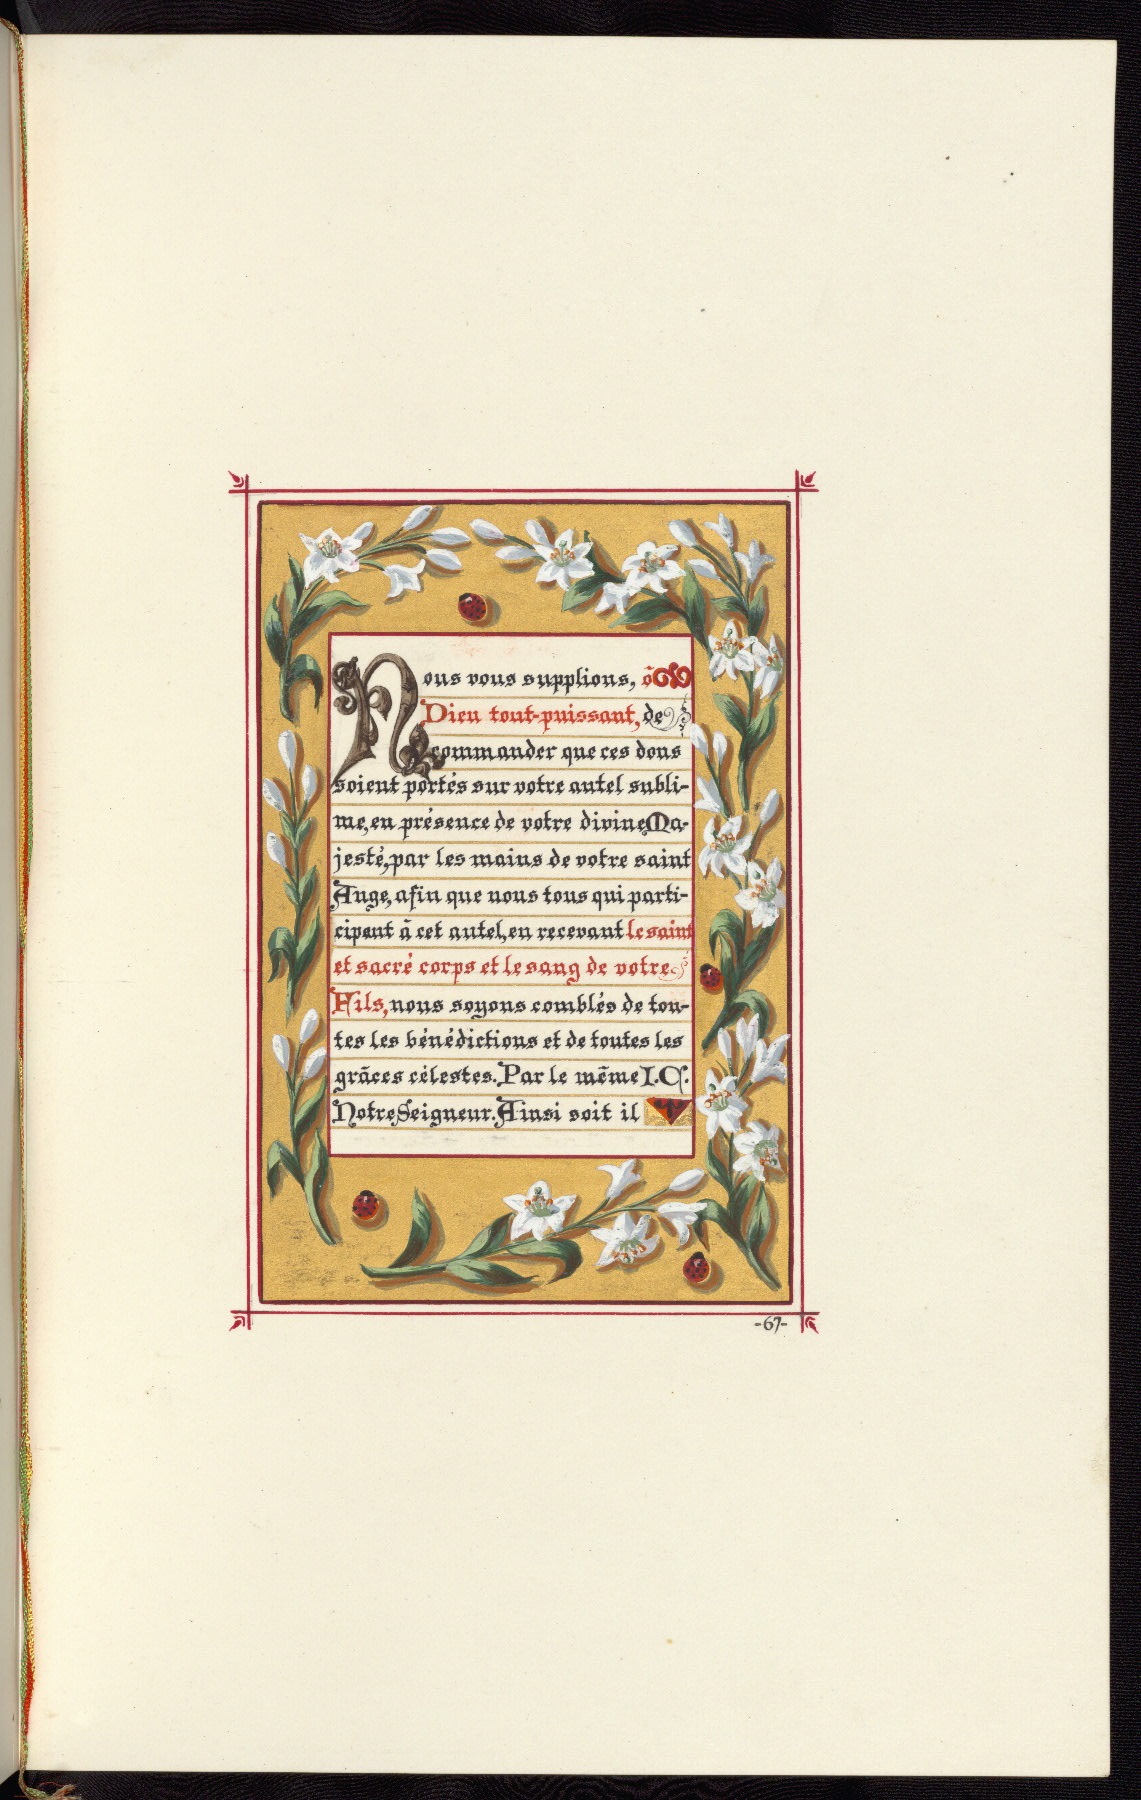 Nous vous supplions, ô
Dieu tout-puissant, de
commander que ces dons
soient portés sur votre autel subli-
me, en présence de votre divine Ma-
jesté, par les mains de votre saint
Ange, afin que nous tous qui parti-
cipent à cet autel, en recevant le saint
et sacré corps et le sang de votre
Fils, nous soyons comblés de tou-
tes les bénédictions et de toutes les
grâces célestes. Par le même I. C.
Notre Seigneur. Ainsi soit il
-67-